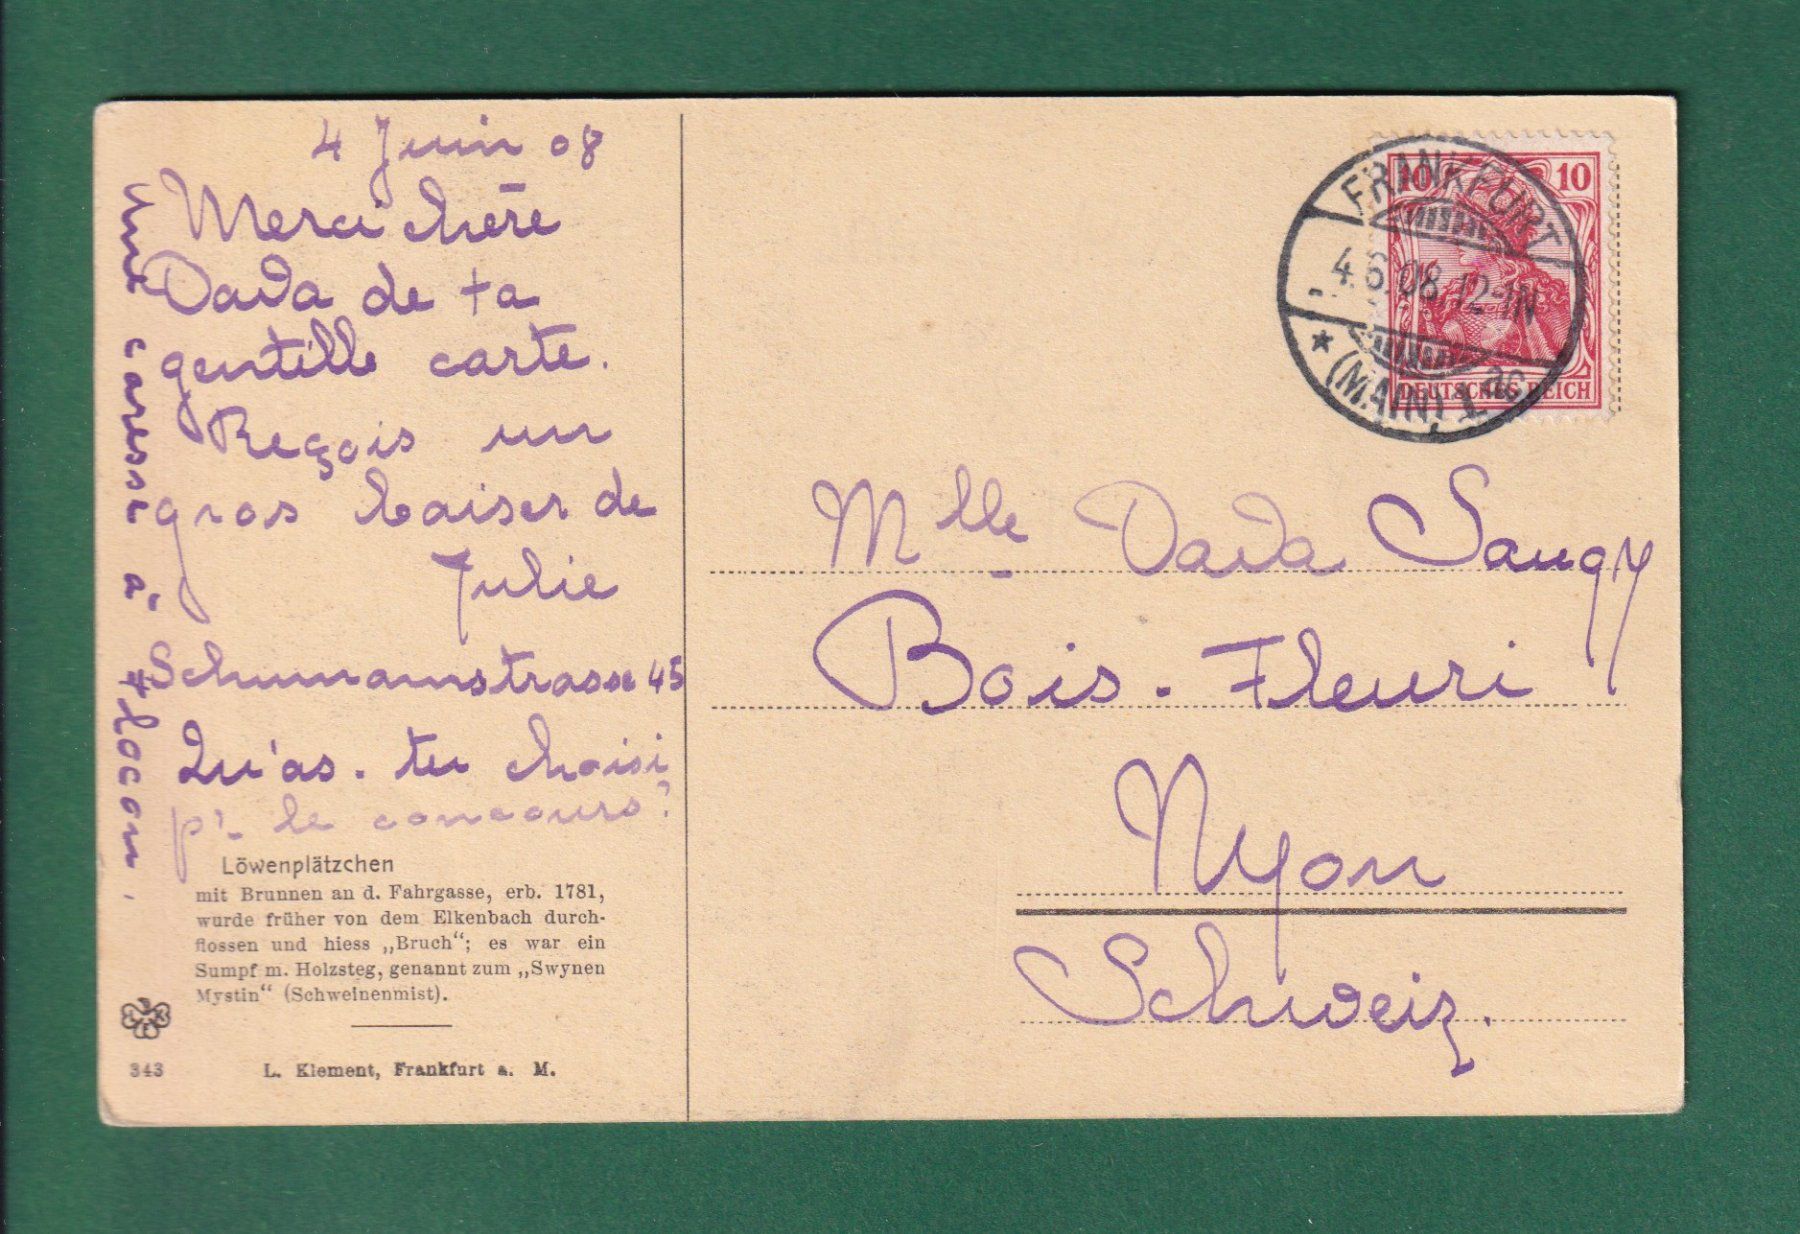 4 Juin 08
Merci chère
Dada de ta
gentille carte.
Reçois un
gros baiser de
Julie
Schumannstrasse 45
Qu'as-tu choisi
pr le concours?
Une caresse à flocon.
Löwenplätzchen
mit Brunnen an d. Fahrgasse, erb. 1781,
wurde früher von dem Elkenbach durch-
flossen und hiess „Bruch“; es war ein
Sumpf m. Holzsteg, genannt zum „Swynen
Mystin“ (Schweinenmist).
343
L. Klement, Frankfurt a. M.
10 10
DEUTSCHES REICH
FRANKFURT
4.6.08.12-1N
* (MAIN) 1
Mlle Dada Saugy
Bois-Fleuri
Nyon
Schweiz.